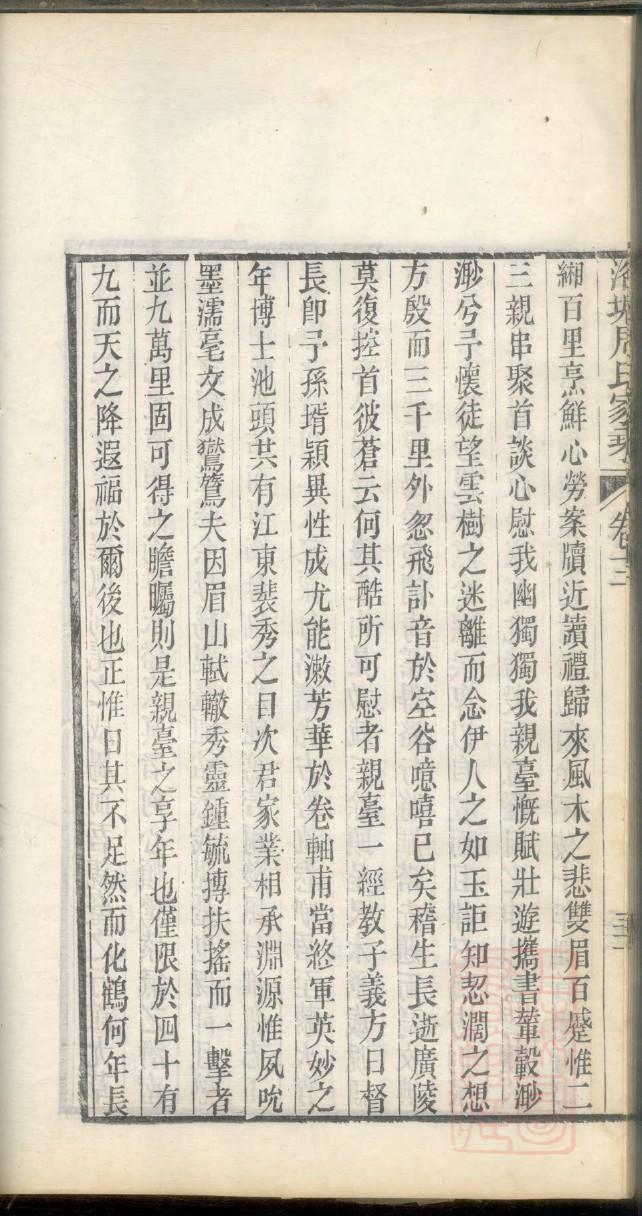 洛塘周氏家乘 卷十三
緗百里烹鮮心勞案牘近讀禮歸來風木之悲雙眉百蹙惟二
三親串聚首談心慰我幽獨獨我親臺慨賦壯遊攜書輦轂渺
渺兮予懷徒望雲樹之迷離而念伊人之如玉詎知契濶之想
方殷而三千里外忽飛訃音於空谷噫嘻已矣嵇生長逝廣陵
莫復捴首彼蒼云何其酷所可慰者親臺一經教子義方日督
長卽予孫壻穎異性成尤能潄芳華於卷軸甫當終軍英妙之
年博士池頭共有江東裴秀之目次君家業相承淵源惟夙吮
墨濡毫文成鸞鷟夫因眉山軾轍秀靈鍾毓摶扶搖而一擊者
並九萬里固可得之瞻矚則是親臺之享年也僅限於四十有
九而天之降遐福於爾後也正惟日其不足然而化鶴何年長